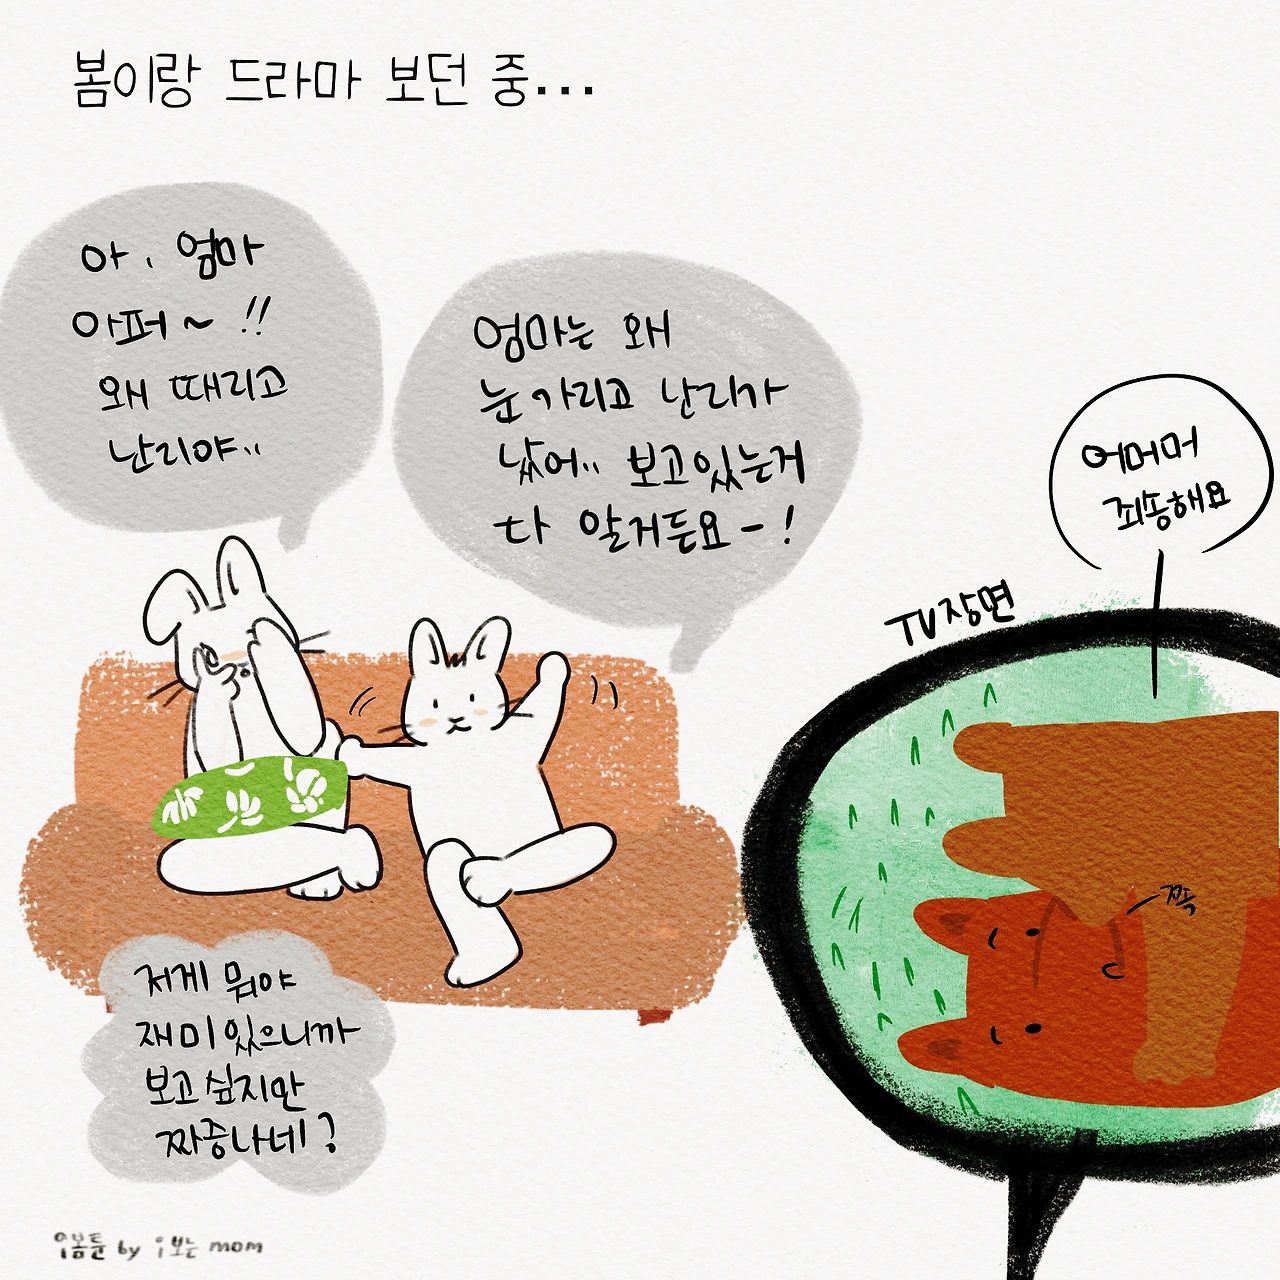 봄이랑 드라마 보던 중...
아, 엄마
아퍼~!!
왜 때리고
난리야..
엄마는 왜
눈가리고 난리가
났어.. 보고있는거
다 알거든요-!
어머머
죄송해요
TV장면
쪽
저게 뭐야
재미있으니까
보고싶지만
짜증나네?
by 보는 mom